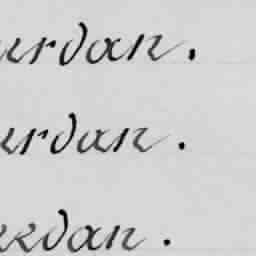 urdan.
urdan.
kdan.